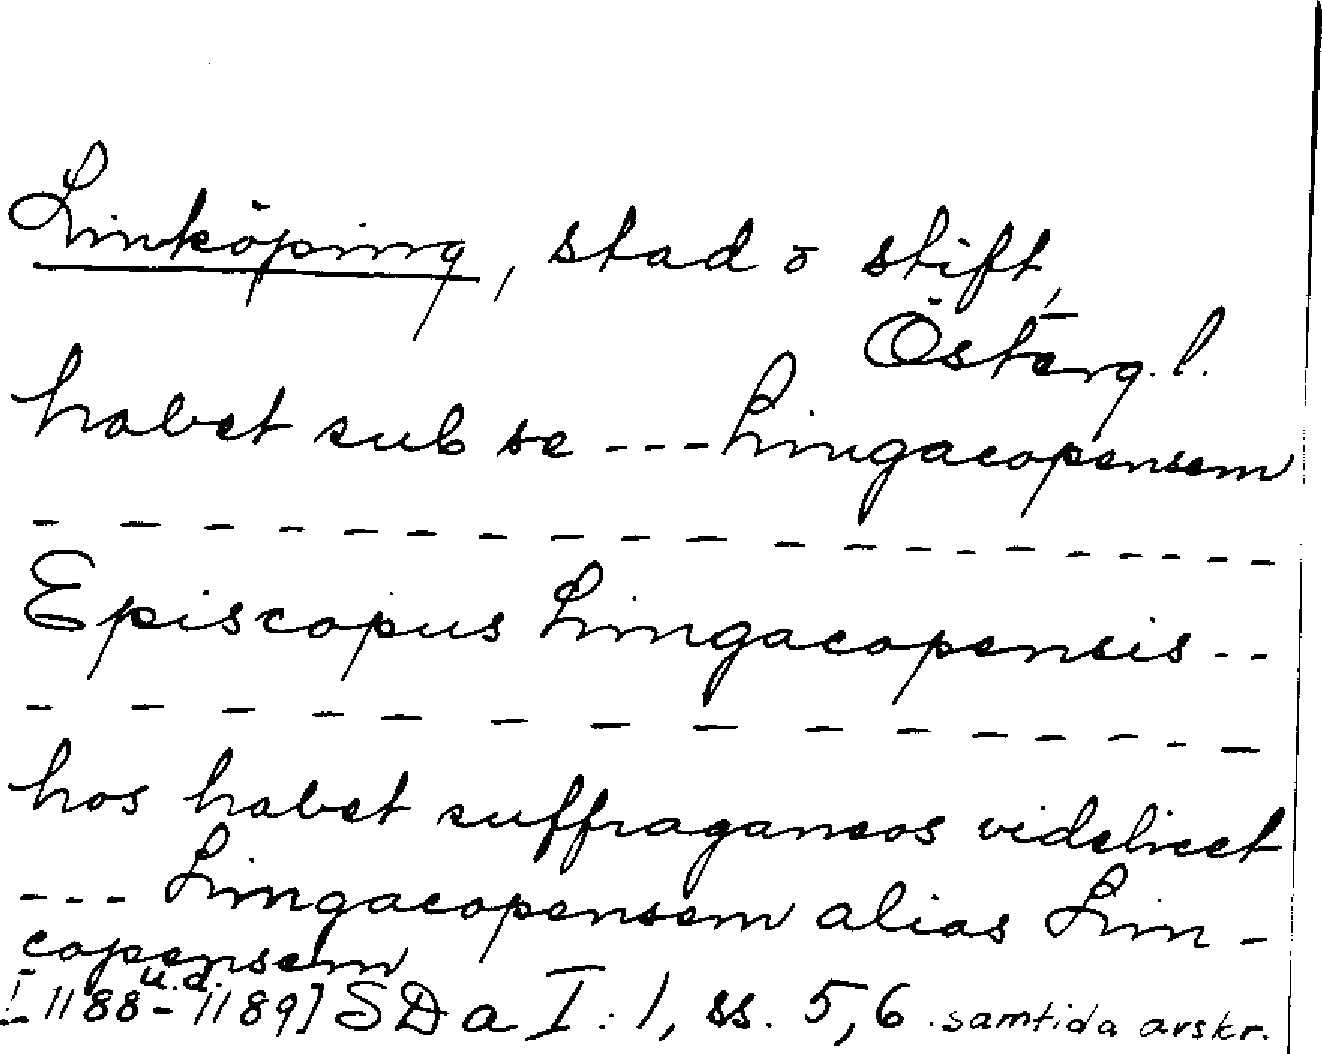 Linköping, stad o stift,
Österg.l.
habet sub se --- Lingacopensem
Episcopus Lingacopensis --
hos habet suffraganeos videlicet
--- Lingacopensem alias Lin-
copensem
u.d.
[1188-1189] SD a I:1, ss. 5,6. samtida avskr.